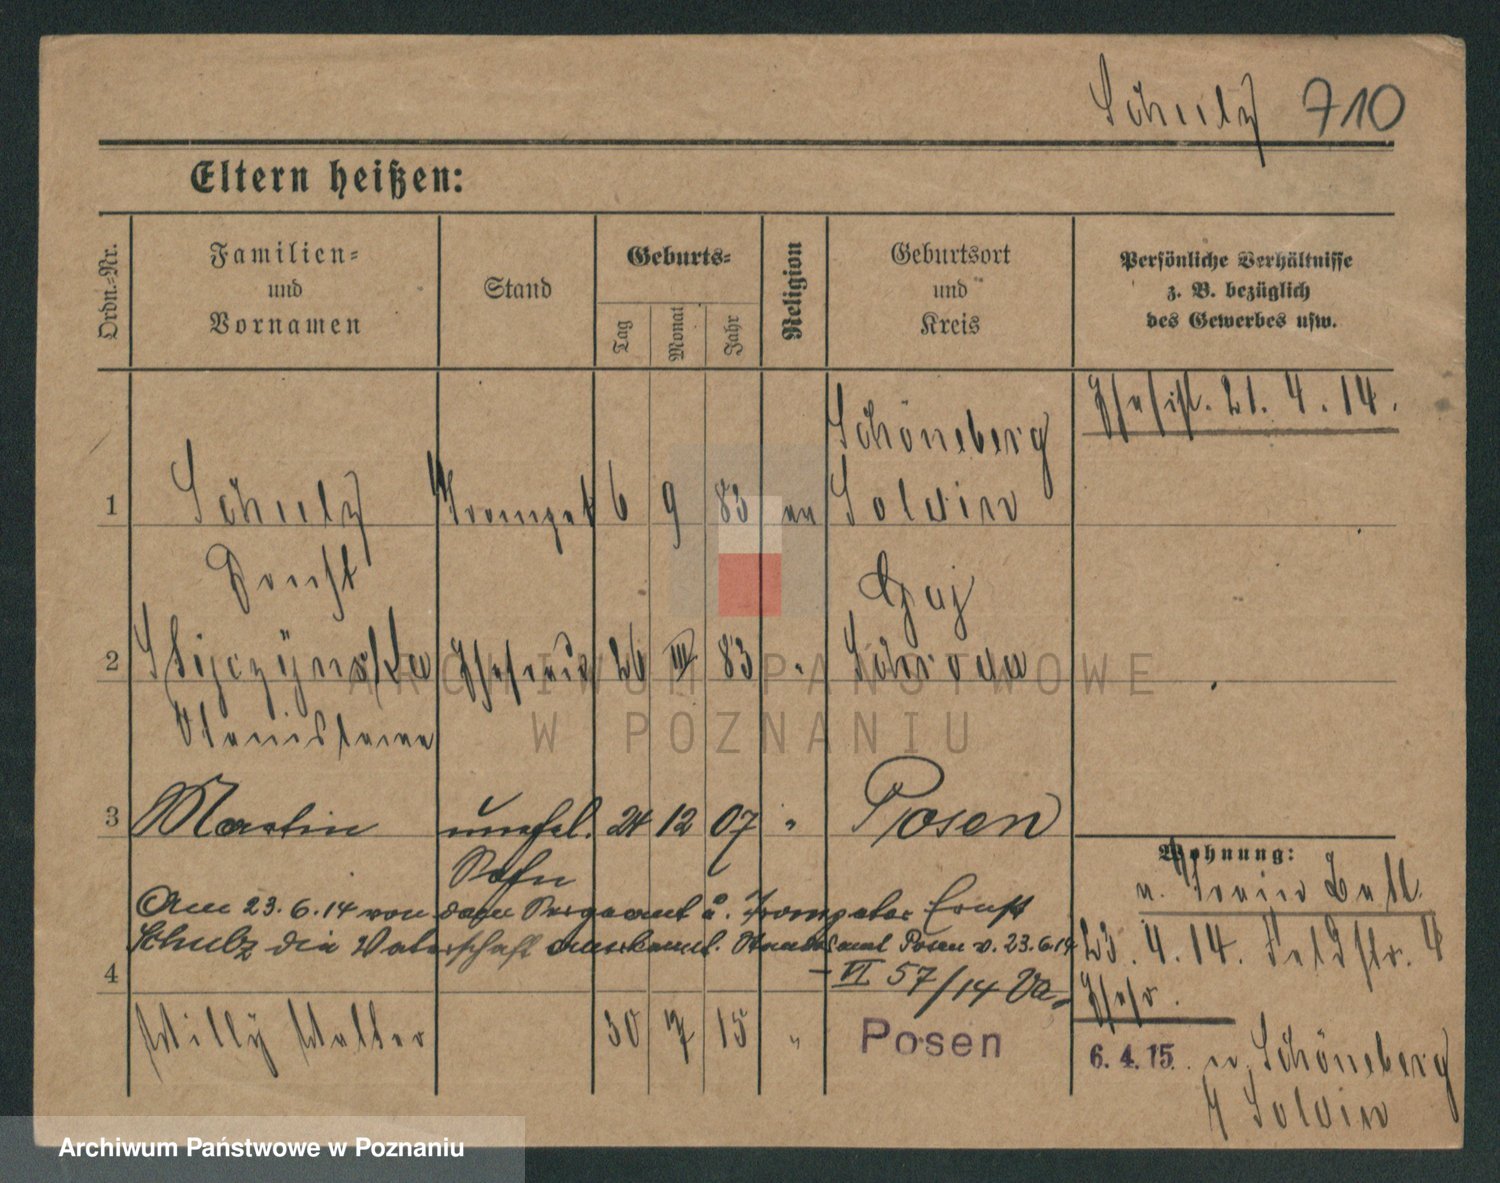 Schulz 710
Eltern heißen:
Ordn.-Nr.
Familien-
und
Vornamen
Stand
Geburts-
Tag
Monat
Jahr
Religion
Geburtsort
und
Kreis
Persönliche Verhältnisse
z. B. bezüglich
des Gewerbes usw.
21. 4. 14.
Schöneberg
1 Schulz Trompet 6 9 83 ev Soldin
Ernst
Gaj
2 Ehefrau 26 III 83 " Schroda
Stanislawa
3 Martin unehel. 24 12 07 " Posen
Sohn
Wohnung:
Am 23.6.14 von dem Sergeant u. Trompeter Ernst
Schulz die Vaterschaft anerkannt. Standesamt Posen v. 23.6.14
23. 4. 14. Feldstr. 4
4 – VI 57/14
Willy Walter 30 7 15 " Posen
6. 4. 15. n. Schöneberg
Soldin
ARCHIWUM PAŃSTWOWE
W POZNANIU
Archiwum Państwowe w Poznaniu